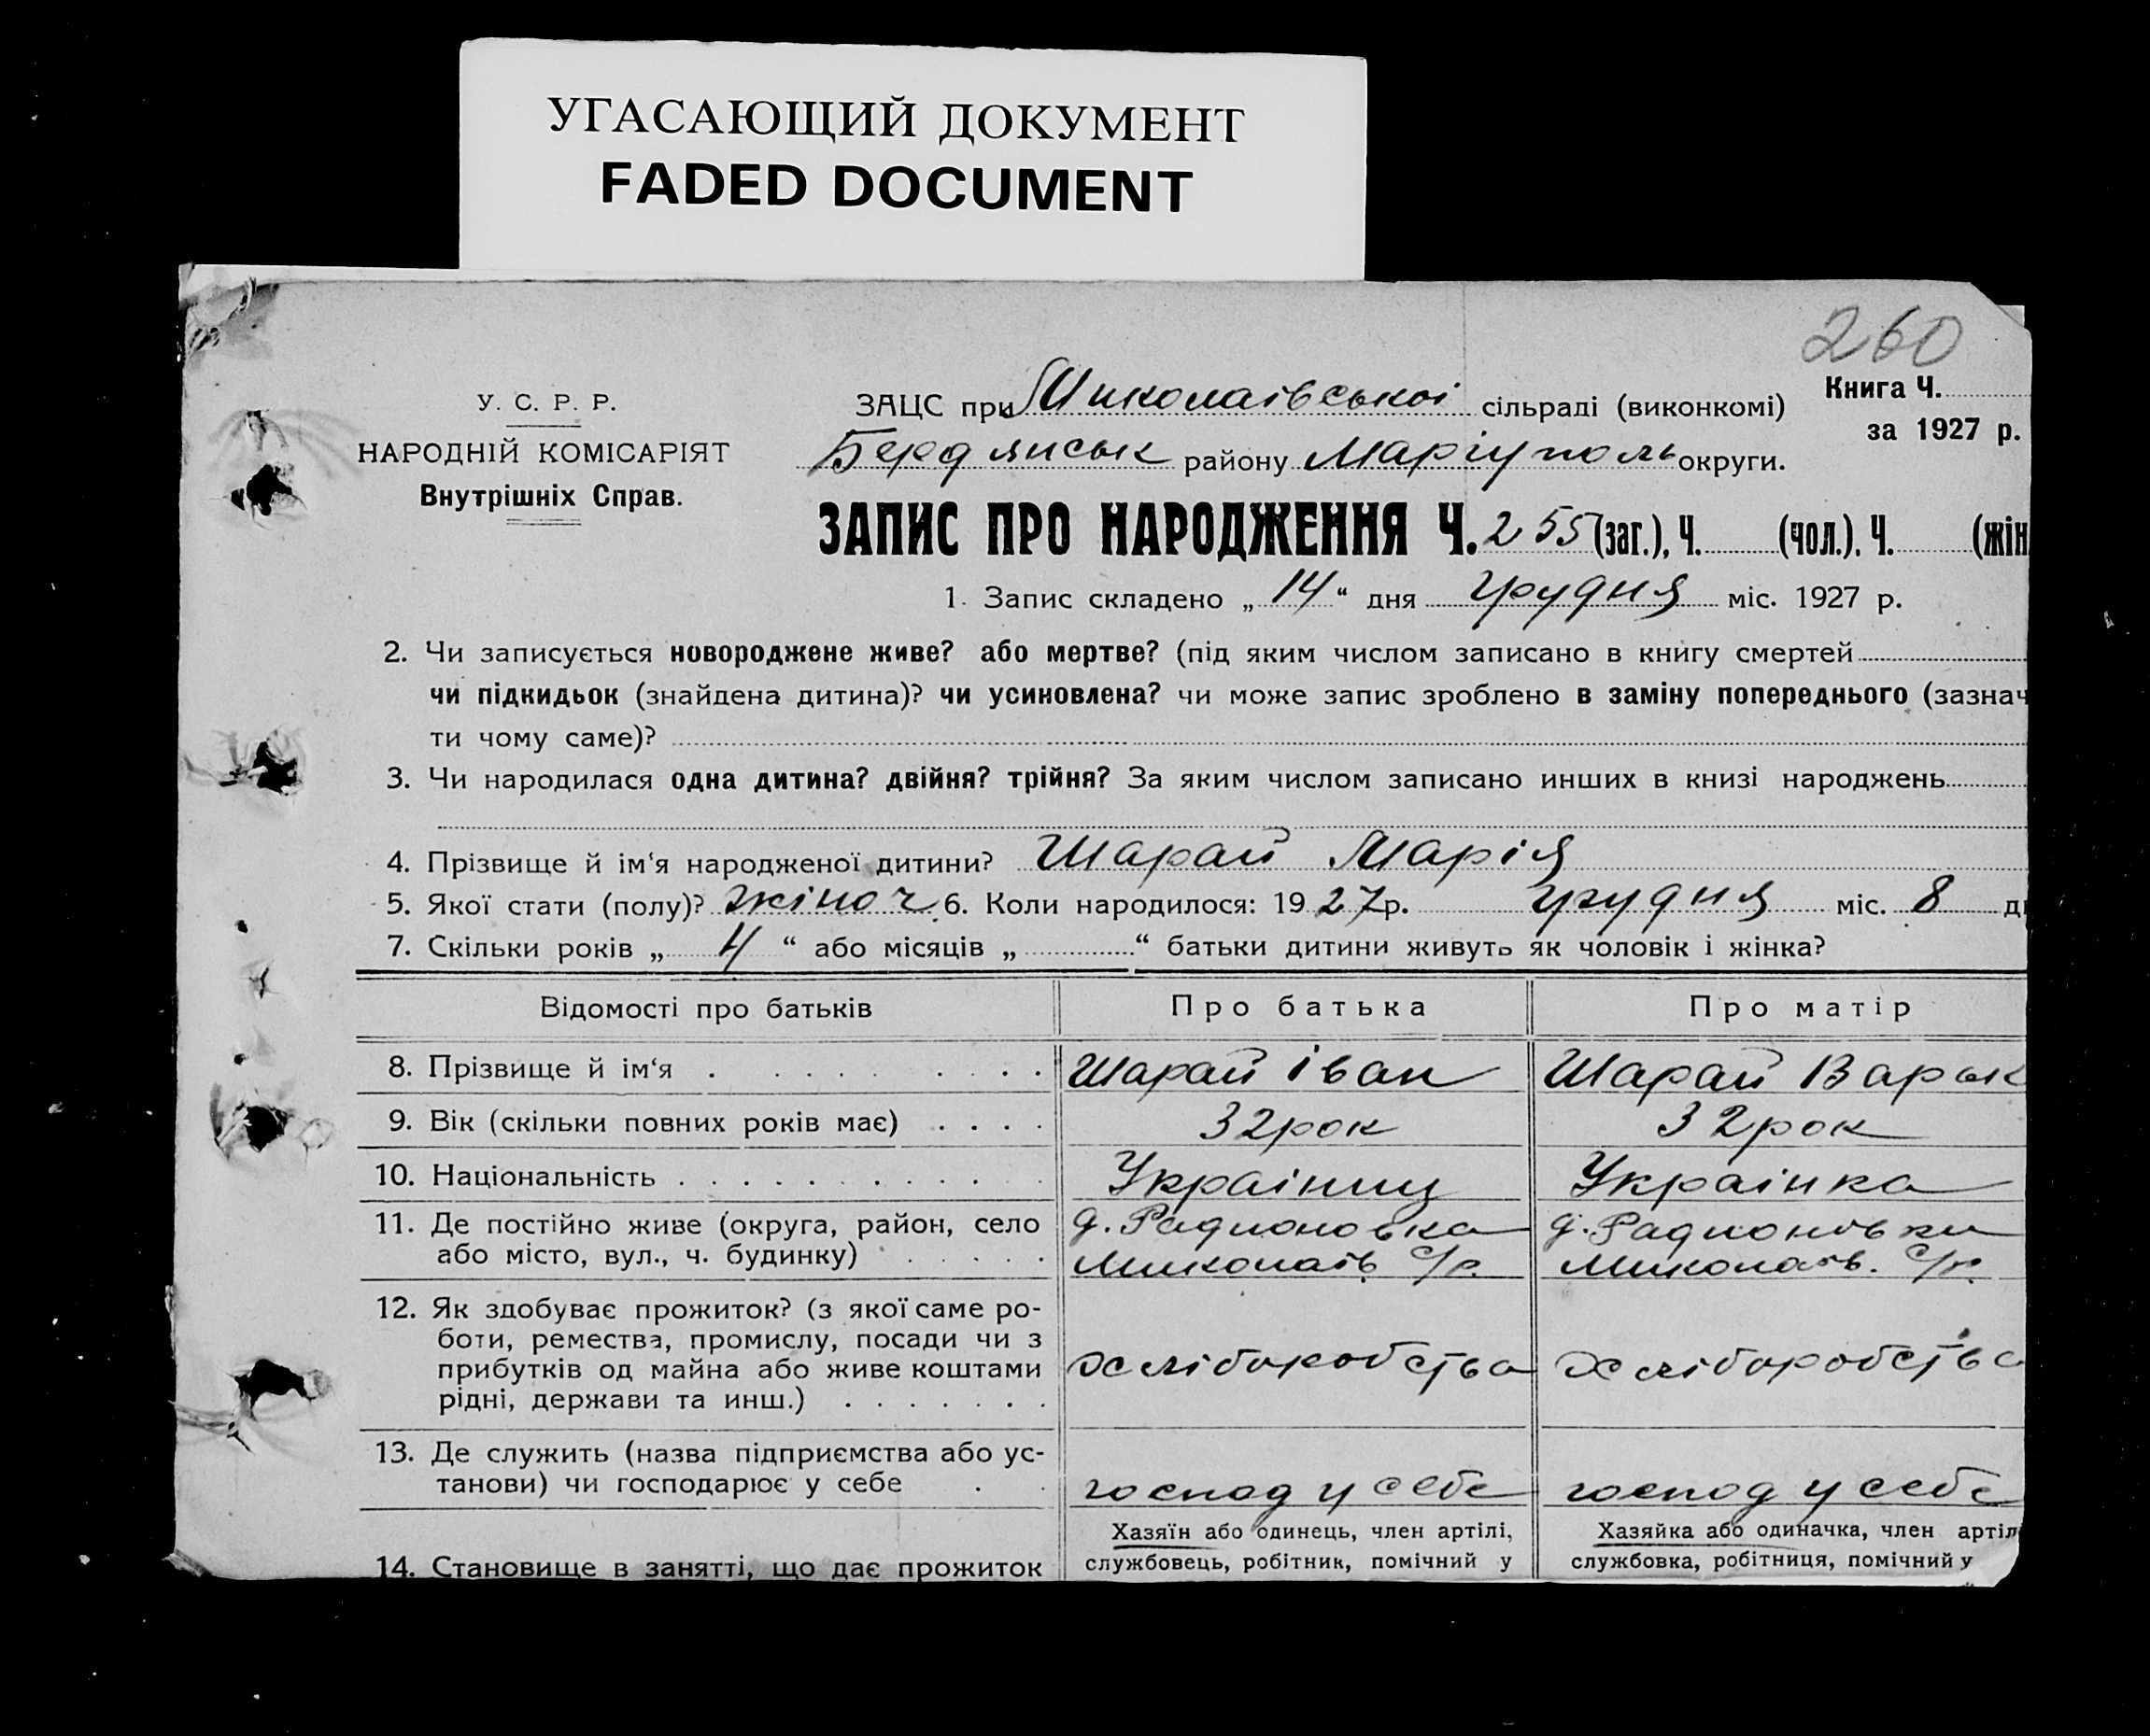 УГАСАЮЩИЙ ДОКУМЕНТ
FADED DOCUMENT
260
У. С. Р. Р.
НАРОДНІЙ КОМІСАРІЯТ
Внутрішніх Справ.
ЗАЦС при Миколаівськоі сільраді (виконкомі)
Бердянськ району Маріуполь округи.
Книга Ч.
за 1927 р.
ЗАПИС ПРО НАРОДЖЕННЯ Ч. 255 (заг.), Ч. (чол.). Ч. (жін
1. Запис складено „ 14 “ дня грудня міс. 1927 р.
2. Чи записується новороджене живе? або мертве? (під яким числом записано в книгу смертей
чи підкидьок (знайдена дитина)? чи усиновлена? чи може запис зроблено в заміну попереднього (зазнач
ти чому саме)?
3. Чи народилася одна дитина? двійня? трійня? За яким числом записано инших в книзі народжень
4. Прізвище й ім‘я народженої дитини? Шарай Марія
5. Якої стати (полу)? жіноч 6. Коли народилося: 19 27 р. грудня міс. 8 д
7. Скільки років „ 4 “ або місяців „ “ батьки дитини живуть як чоловік і жінка?
Відомості про батьків Про батька Про матір
8. Прізвище й ім‘я Шарай Іван Шарай Варьк
9. Вік (скільки повних років має) 32 рок 32 рок
10. Національність Украінец Украінка
11. Де постійно живе (округа, район, село д. Радионовка д. Радионовки
або місто, вул., ч. будинку) Миколаів с/р. Миколаів. с/р.
12. Як здобуває прожиток? (з якої саме ро-
боти, ремества, промислу, посади чи з
прибутків од майна або живе коштами хліборобства хліборобства
рідні, держави та инш.)
13. Де служить (назва підприємства або ус-
танови) чи господарює у себе господ у себе господ у себе
Хазяїн або одинець, член артілі, Хазяйка або одиначка, член артіл
14. Становище в занятті, що дає прожиток службовець, робітник, помічний у службовка, робітниця, помічний у